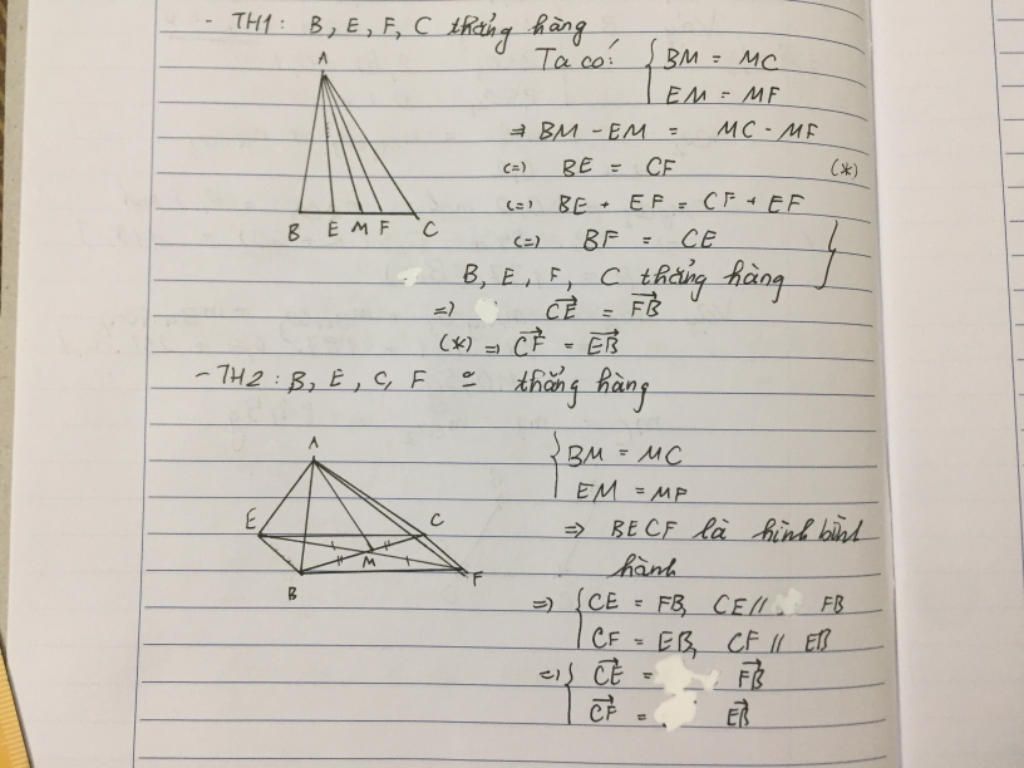 - TH1: B, E, F, C thẳng hàng
A
Ta có: { BM = MC
EM = MF
⇒ BM - EM = MC - MF
(=) BE = CF (*)
(=) BE + EF = CF + EF
B E M F C
(=) BF = CE }
B, E, F, C thẳng hàng
=) \overrightarrow{CE} = \overrightarrow{FB}
(*) ⇒ \overrightarrow{CF} = \overrightarrow{EB}
- TH2: B, E, C, F thẳng hàng
A
{ BM = MC
EM = MF
E C
⇒ BECF là hình bình
M
hành
F
B
⇒ { CE = FB, CE // FB
CF = EB, CF // EB
=) { \overrightarrow{CE} = \overrightarrow{FB}
\overrightarrow{CF} = \overrightarrow{EB}